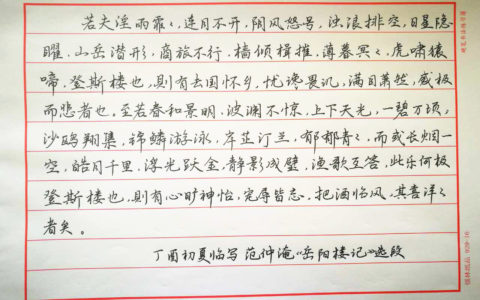 若夫淫雨霏〻,连月不开,阴风怒号,浊浪排空,日星隐
曜,山岳潜形,商旅不行,樯倾楫摧,薄暮冥〻,虎啸猿
啼,登斯楼也,则有去国怀乡,忧谗畏讥,满目萧然,感极
而悲者也,至若春和景明,波澜不惊,上下天光,一碧万顷,
沙鸥翔集,锦鳞游泳,岸芷汀兰,郁郁青〻,而或长烟一
空,皓月千里,浮光跃金,静影成璧,渔歌互答,此乐何极
登斯楼也,则有心旷神怡,宠辱皆忘,把酒临风,其喜洋〻
者矣。
丁酉初夏临写范仲淹《岳阳楼记》选段